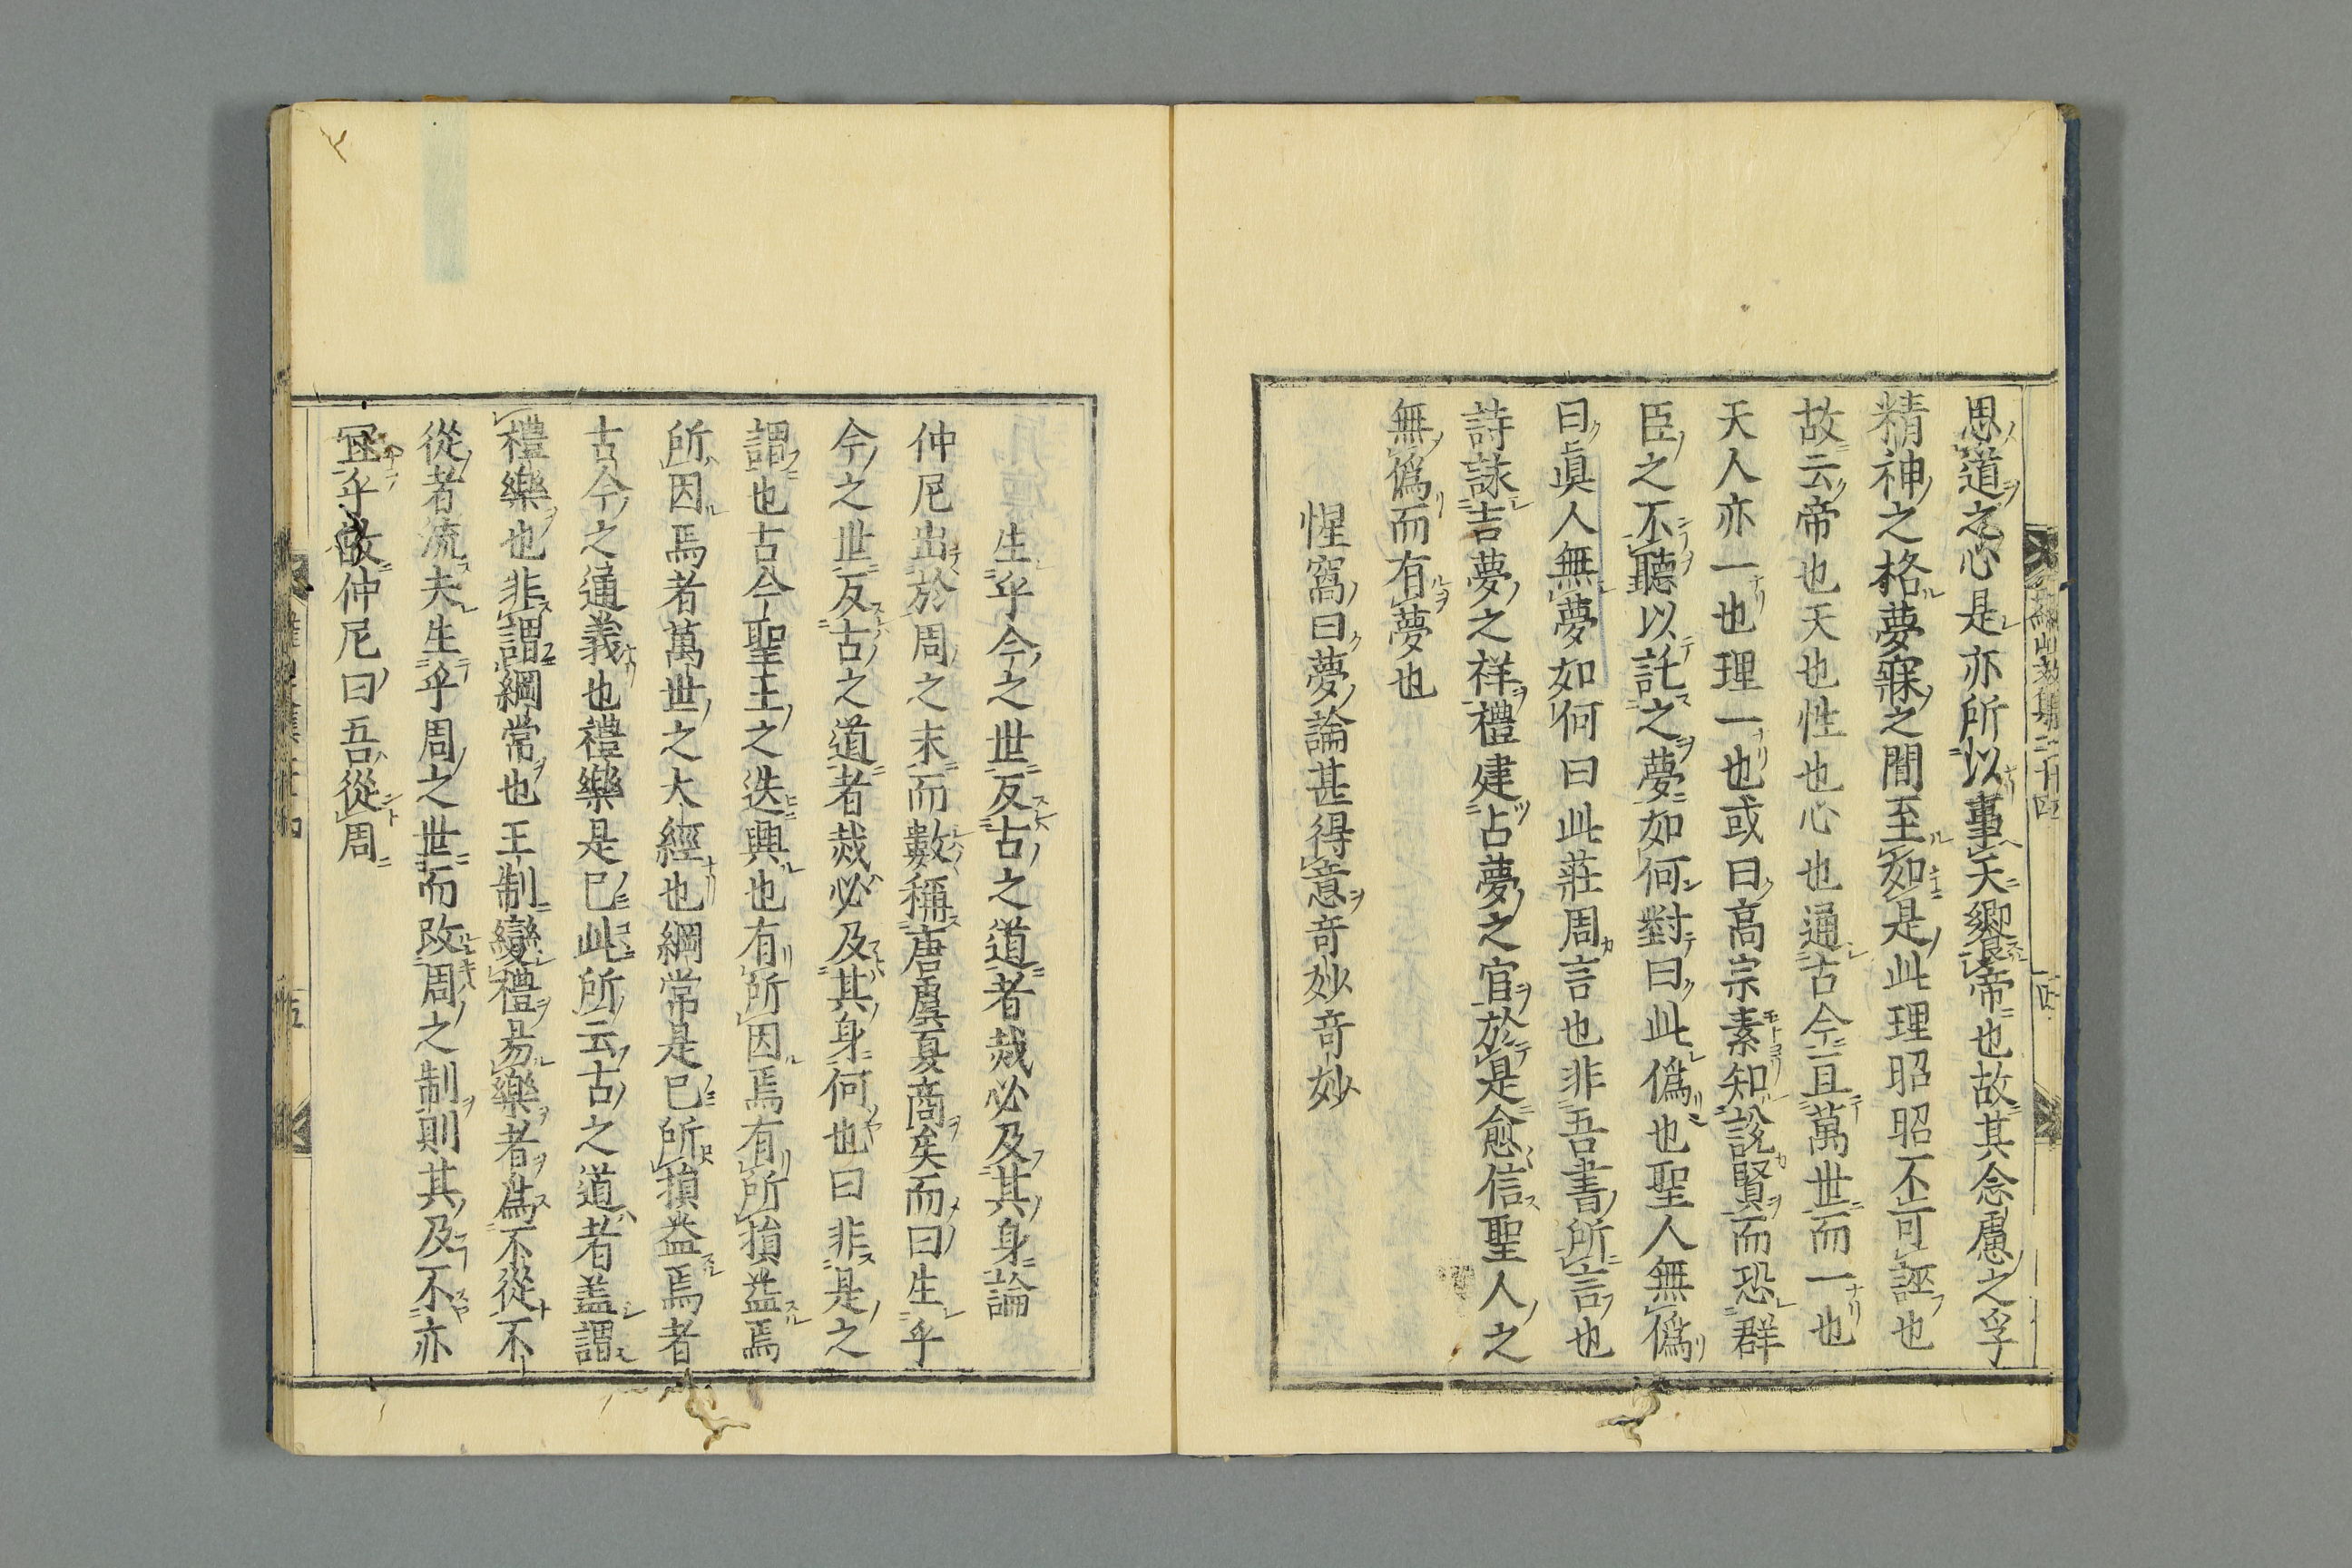 思道之心是亦所以事天饗帝也故其念慮之孚
精神之格夢寐之間至如是此理昭昭不可誣也
故云帝也天也性也心也通古今亘萬世而一也
天人亦一也理一也或曰高宗素知說賢而恐群
臣之不聽以託之夢如何對曰此偽也聖人無偽
曰眞人無夢如何曰此莊周言也非吾書所言也
詩詠吉夢之祥禮建占夢之官於是愈信聖人之
無偽而有夢也
惺窩曰夢論甚得意奇妙奇妙
生乎今之世反古之道者烖必及其身論
仲尼出於周之末而數稱唐虞夏商矣而曰生乎
今之世反古之道者烖必及其身何也曰非是之
謂也古今聖王之迭興也有所因焉有所損益焉
所因焉者萬世之大經也綱常是已所損益焉者
古今之通義也禮樂是已此所云古之道者盖謂
禮樂也非謂綱常也王制變禮易樂者為不從不
從者流夫生乎周之世而改周之制則其及不亦
冝乎故仲尼曰吾從周